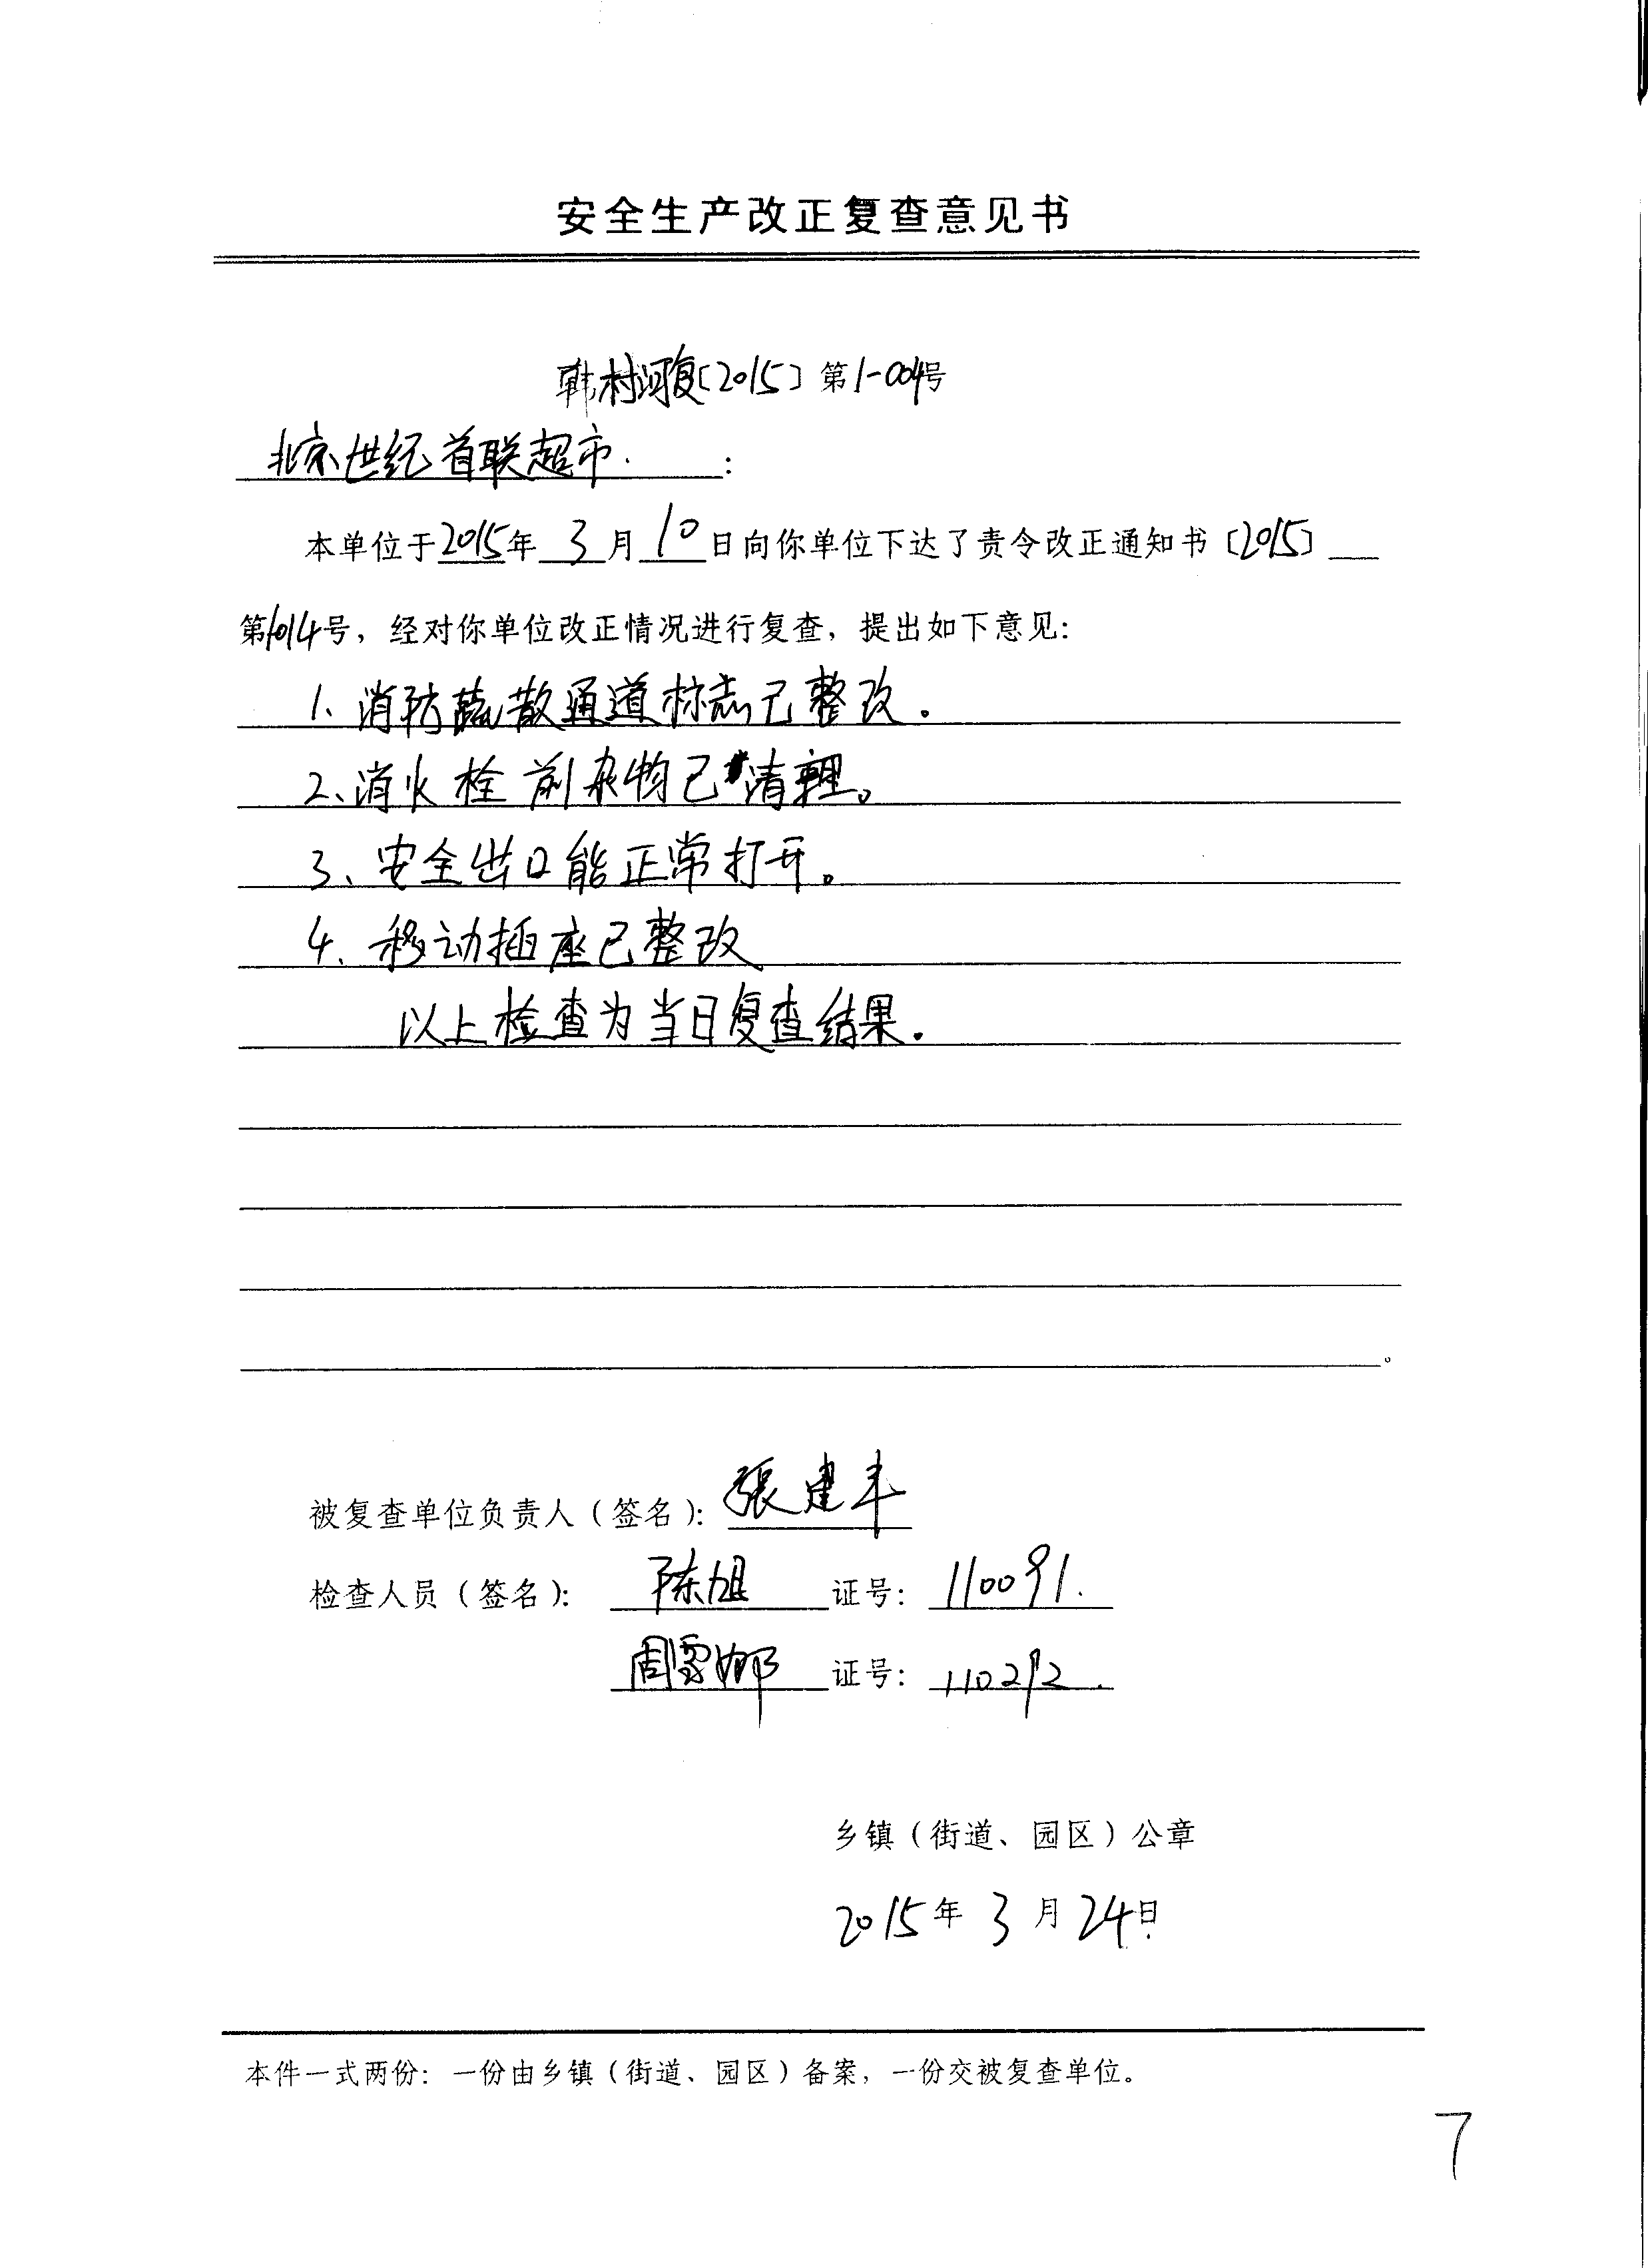 安全生产改正复查意见书
韩村河复〔2015〕第1-004号
北京世纪首联超市.:
本单位于2015年3月10日向你单位下达了责令改正通知书〔2015〕
第1014号，经对你单位改正情况进行复查，提出如下意见：
1、消防疏散通道标志已整改.
2、消火栓前杂物已清理。
3、安全出口能正常打开。
4、移动插座已整改
以上检查为当日复查结果.
。
被复查单位负责人（签名）：張建丰
检查人员（签名）：陈旭 证号：110091.
周雪娜 证号：110292.
乡镇（街道、园区）公章
2015年3月24日
本件一式两份：一份由乡镇（街道、园区）备案，一份交被复查单位。
7